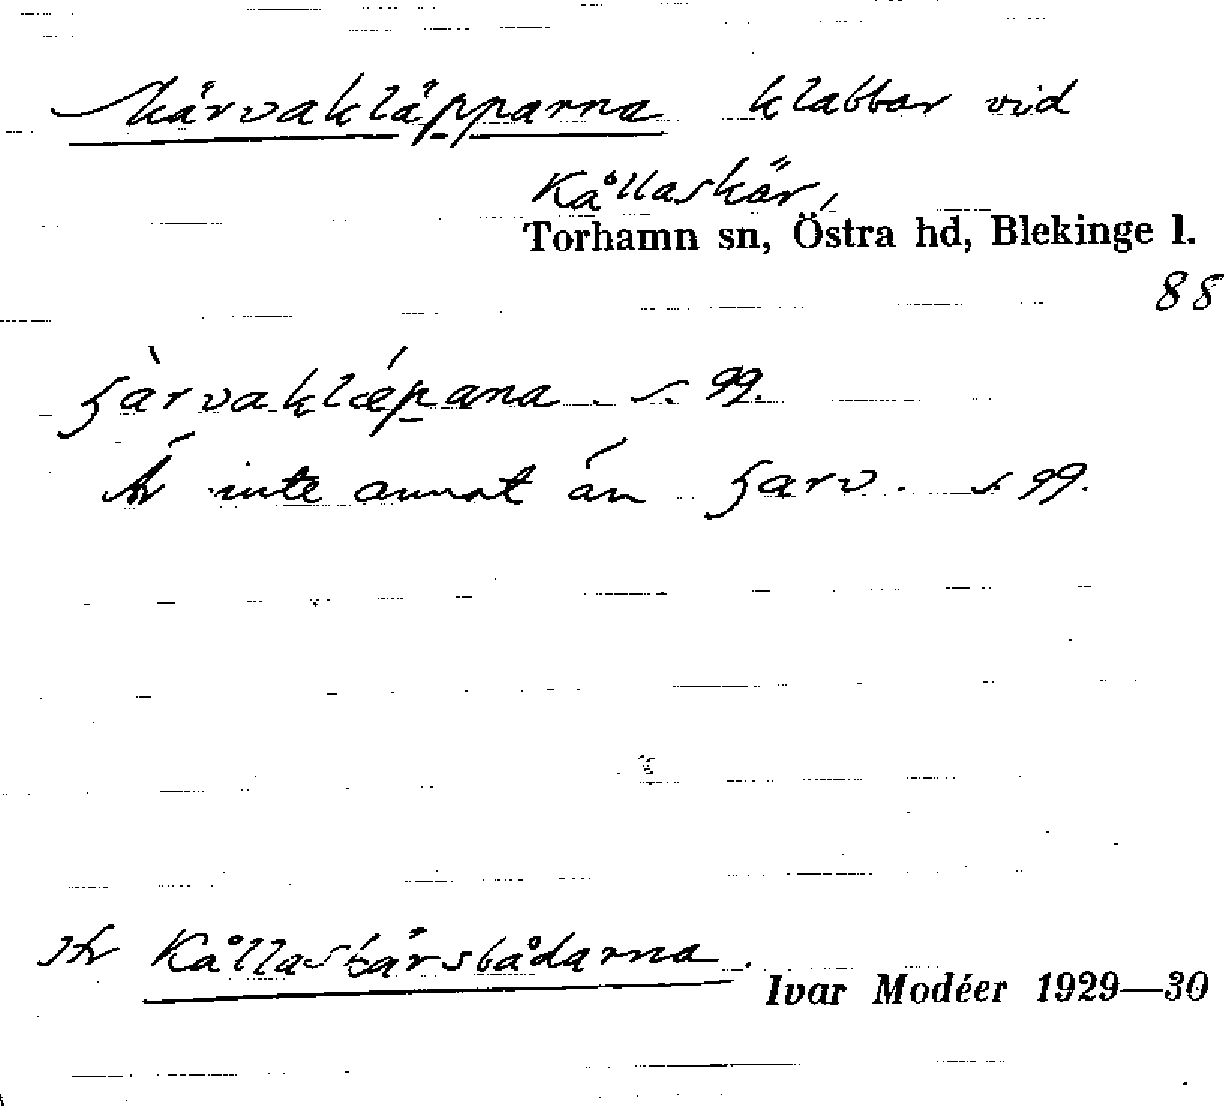 Kärvakläpparna klabbar vid
Kållaskär,
Torhamn sn, Östra hd, Blekinge l.
88
s. 99.
Är inte annat än s. 99.
Kållaskärsbådarna.
Ivar Modéer 1929—30